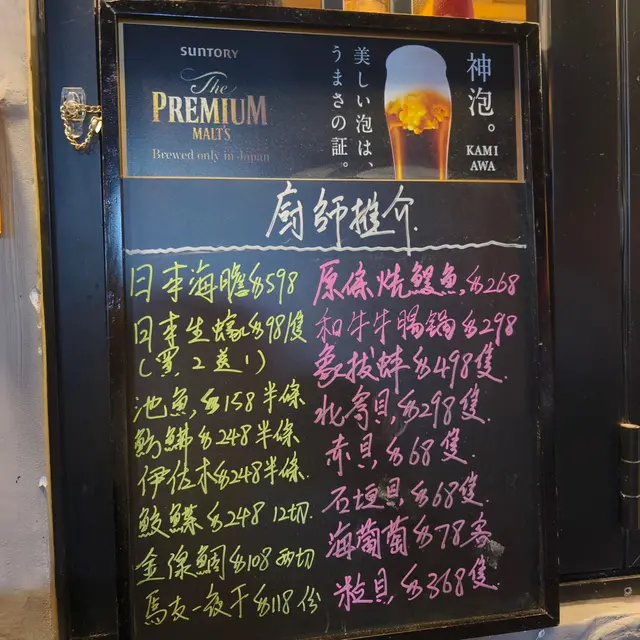 SUNTORY
The
PREMIUM
MALT'S
Brewed only in Japan
美しい泡は、
うまさの証。
神泡。
KAMI
AWA
廚師推介
日本海膽$598
日本生蠔$98隻
(買2送1)
池魚$158半條
鰤鱼$248半條
伊佐木$248半條
鮫鰈$248 12切
金線鯛$108 兩切
馬友一夜干$118份
原條燒鰻魚$268
和牛牛腸鍋$298
象拔蚌$498隻
北寄貝$298隻
赤貝$68隻
石垣貝$68隻
海葡萄$78客
粒貝$368隻